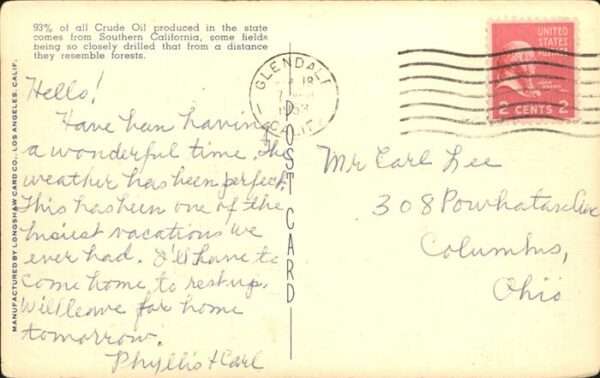 93% of all Crude Oil produced in the state
comes from Southern California, some fields
being so closely drilled that from a distance
they resemble forests.
MANUFACTURED BY LONGSHAW CARD CO., LOS ANGELES, CALIF.
Hello!
Have been having
a wonderful time. The
weather has been perfect.
This has been one of the
busiest vacations we
ever had. I'll have to
come home to rest up.
Will leave for home
tomorrow.
Phyllis & Carl
POST CARD
GLENDALE
CALIF.
UNITED
STATES
2 CENTS 2
Mr Carl Lee
308 Powhatan Ave
Columbus,
Ohio